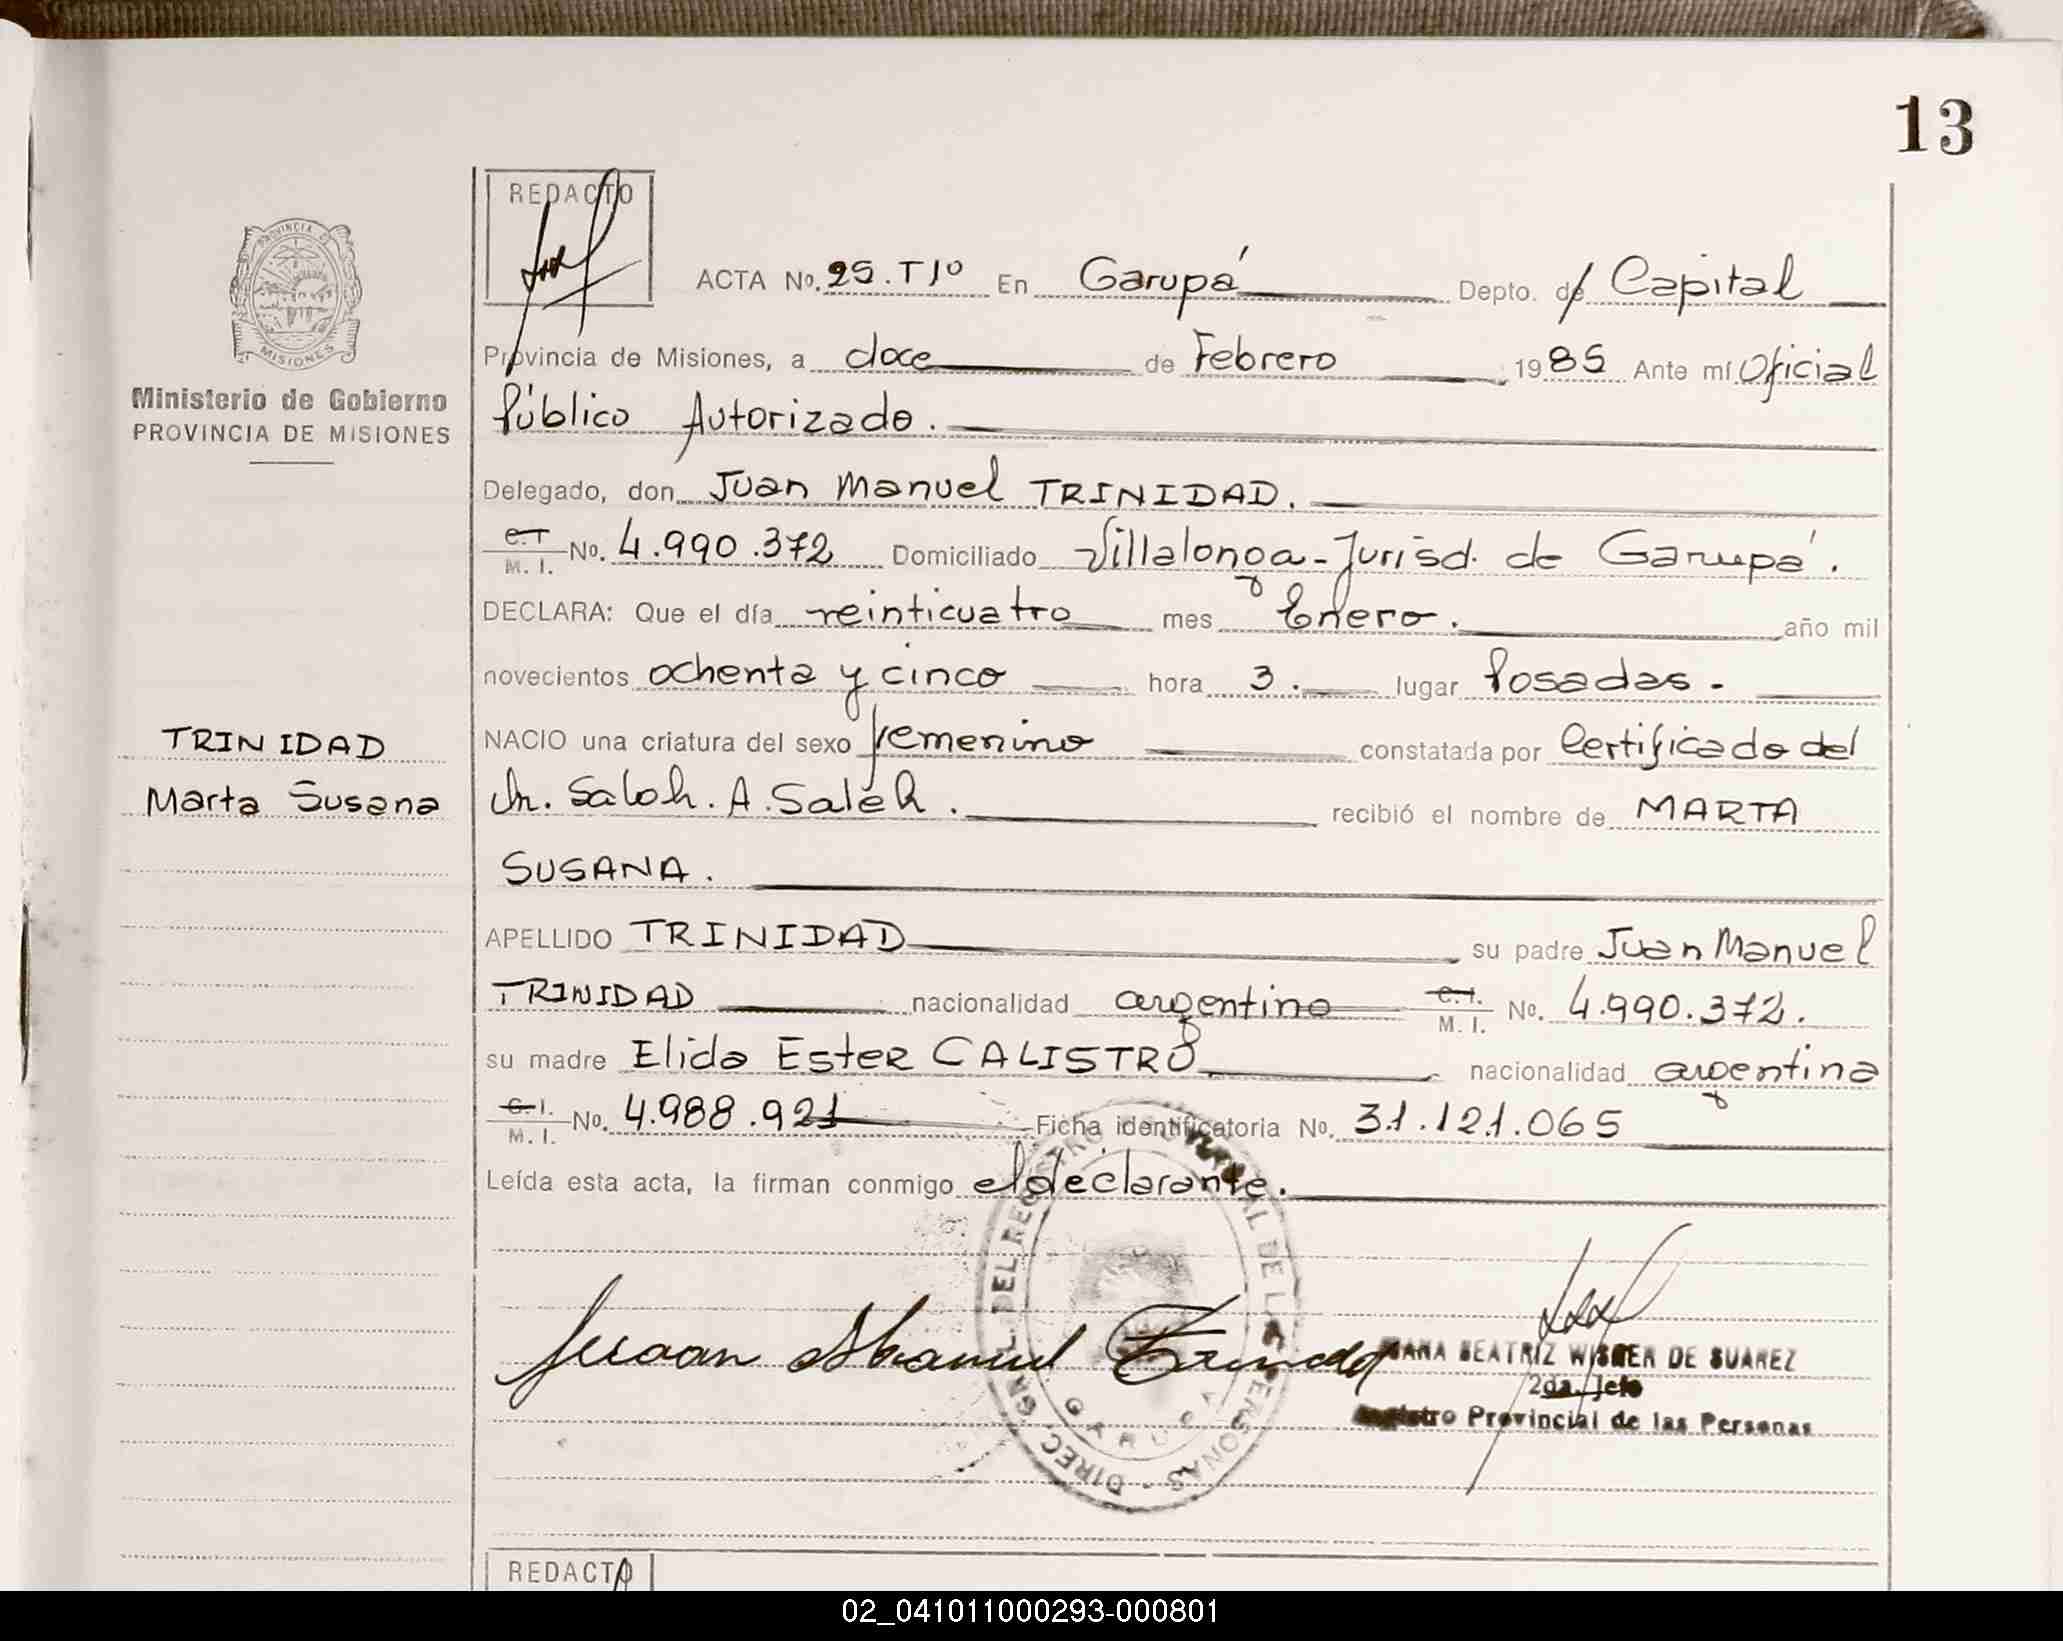 13
REDACTO
PROVINCIA DE
MISIONES
Ministerio de Gobierno
PROVINCIA DE MISIONES
ACTA No. 25.T1º En Garupá Depto. de Capital
Provincia de Misiones, a doce de Febrero 1985 Ante mí Oficial
Público Autorizado.
Delegado, don Juan Manuel TRINIDAD.
C.I. M. I. No. 4.990.372 Domiciliado Villalonga-Jurisd. de Garupá.
DECLARA: Que el día veinticuatro mes Enero. año mil
novecientos ochenta y cinco hora 3. lugar Posadas.
TRINIDAD
Marta Susana
NACIO una criatura del sexo femenino constatada por Certificado del
Dr. Saloh. A. Saleh. recibió el nombre de MARTA
SUSANA.
APELLIDO TRINIDAD su padre Juan Manuel
TRINIDAD nacionalidad argentino C.I. M. I. No. 4.990.372.
su madre Elida Ester CALISTRO nacionalidad argentina
C.I. M. I. No. 4.988.921 Ficha identificatoria No. 31.121.065
Leída esta acta, la firman conmigo el declarante.
DIREC. GRAL. DEL REGISTRO PROVINCIAL DE LAS PERSONAS
GARUPA
Juaan Manuel Trinidad
BEATRIZ WISNER DE SUAREZ
2da. Jefe
Registro Provincial de las Personas
REDACTO
02_041011000293-000801